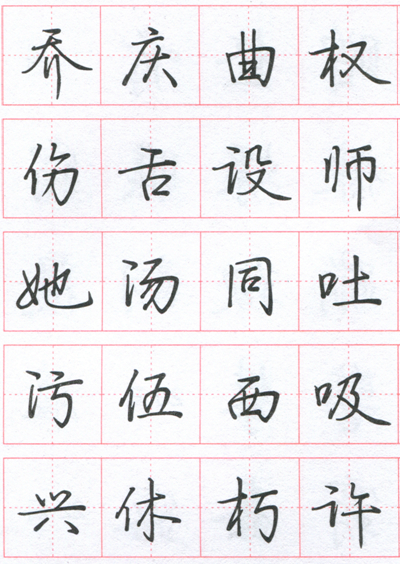 乔庆曲权
伤舌设师
她汤同吐
污伍西吸
兴休朽许